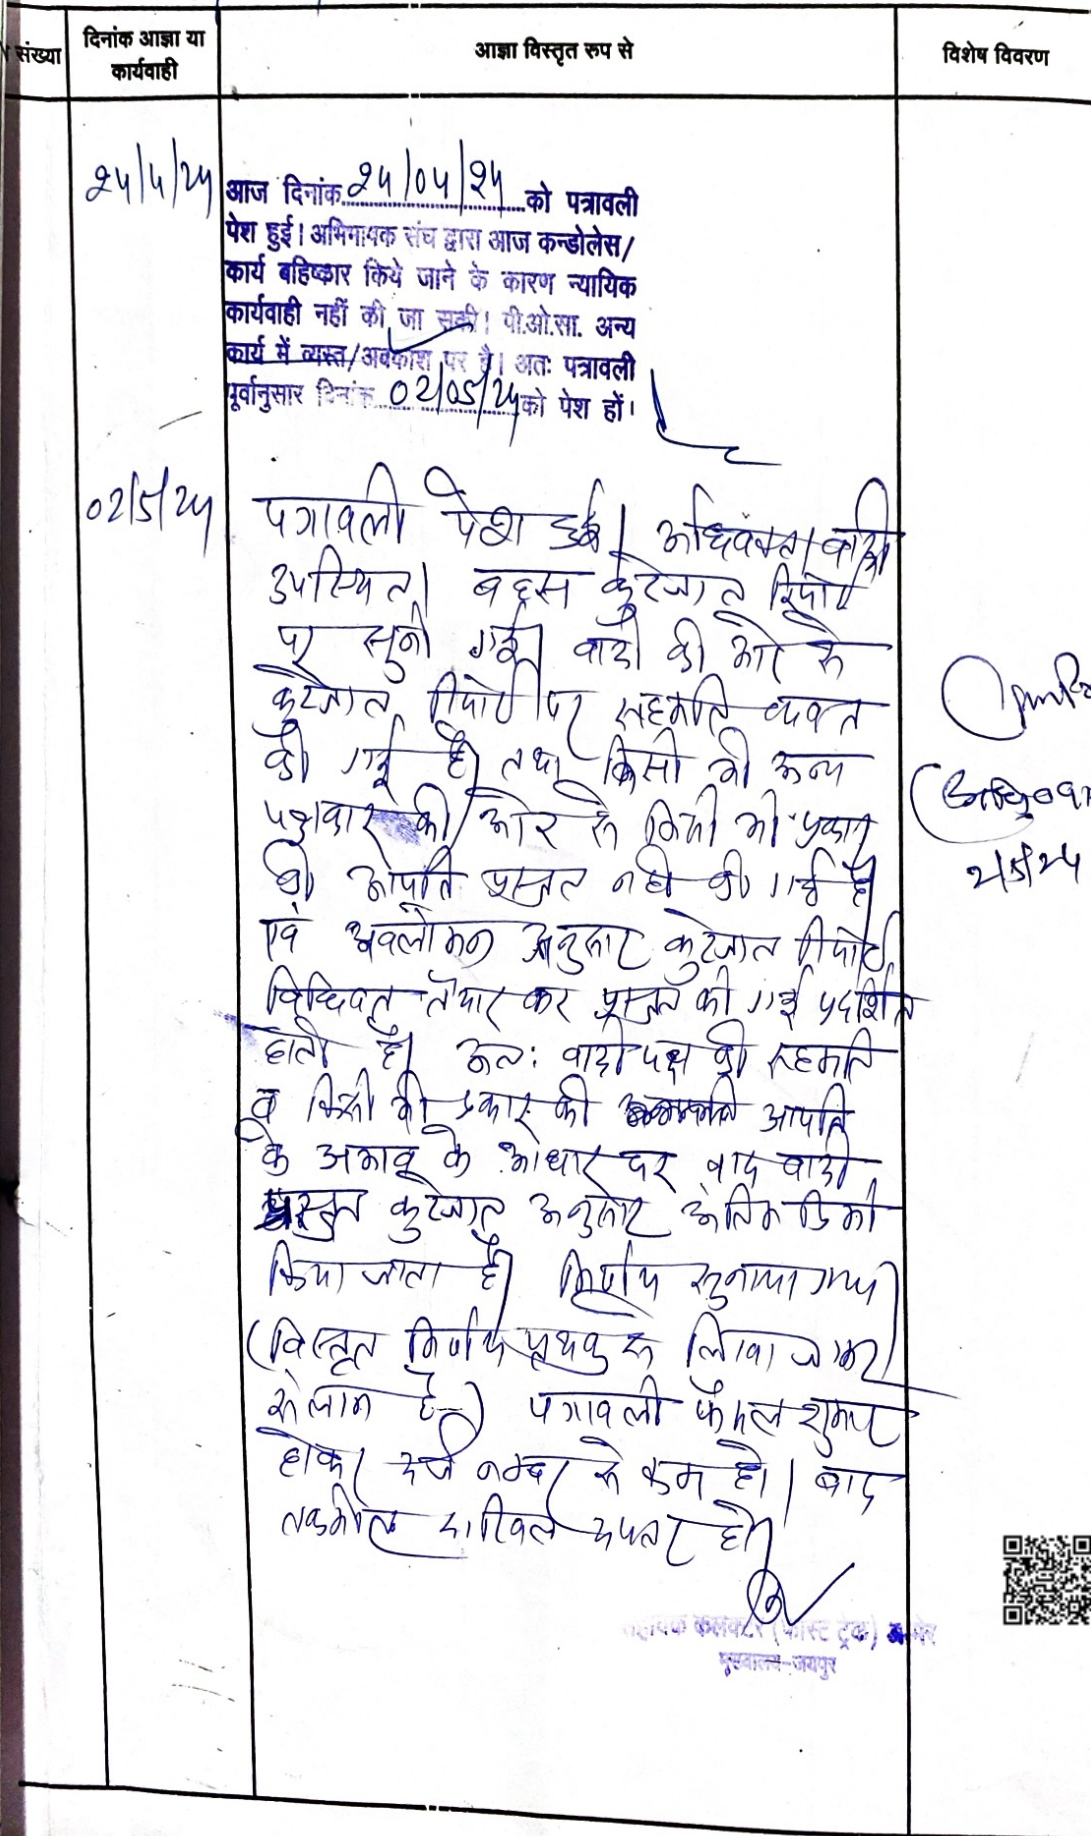 संख्या
दिनांक आज्ञा या
कार्यवाही
आज्ञा विस्तृत रुप से
विशेष विवरण
24/4/24
आज दिनांक 24/04/24 को पत्रावली
पेश हुई। अभिभावक संघ द्वारा आज कन्डोलेस/
कार्य बहिष्कार किये जाने के कारण न्यायिक
कार्यवाही नहीं की जा सकी। पी.ओ.सा. अन्य
कार्य में व्यस्त/अवकाश पर है। अतः पत्रावली
पूर्वानुसार दिनांक 02/05/24 को पेश हों।
02/5/24
पत्रावली पेश हुई। अधिवक्ता वादी
उपस्थित। बहस कुरेजात रिपोर्ट
पर सुनी गई। वादी की ओर से
कुरेजात रिपोर्ट पर सहमति व्यक्त
की गई है तथा किसी भी अन्य
पक्षकार की ओर से किसी भी प्रकार
की आपत्ति प्रस्तुत नहीं की गई है
एवं अवलोकन अनुसार कुरेजात रिपोर्ट
विधिवत तैयार कर प्रस्तुत की गई प्रदर्शित
होती है। अतः वादी पक्ष की सहमति
व किसी भी प्रकार की आपत्ति
के अभाव के आधार पर वाद वादी
प्रस्तुत कुरेजात अनुसार अंतिम डिक्री
किया जाता है। निर्णय सुनाया गया
(विस्तृत निर्णय पृथक से लिखा जाकर
संलग्न है) पत्रावली फैसल शुमार
होकर दर्ज नम्बर से कम हो। बाद
तकमील दाखिल दफ्तर हो।
2/5/24
सहायक कलक्टर (फास्ट ट्रेक)
मुख्यालय-जयपुर